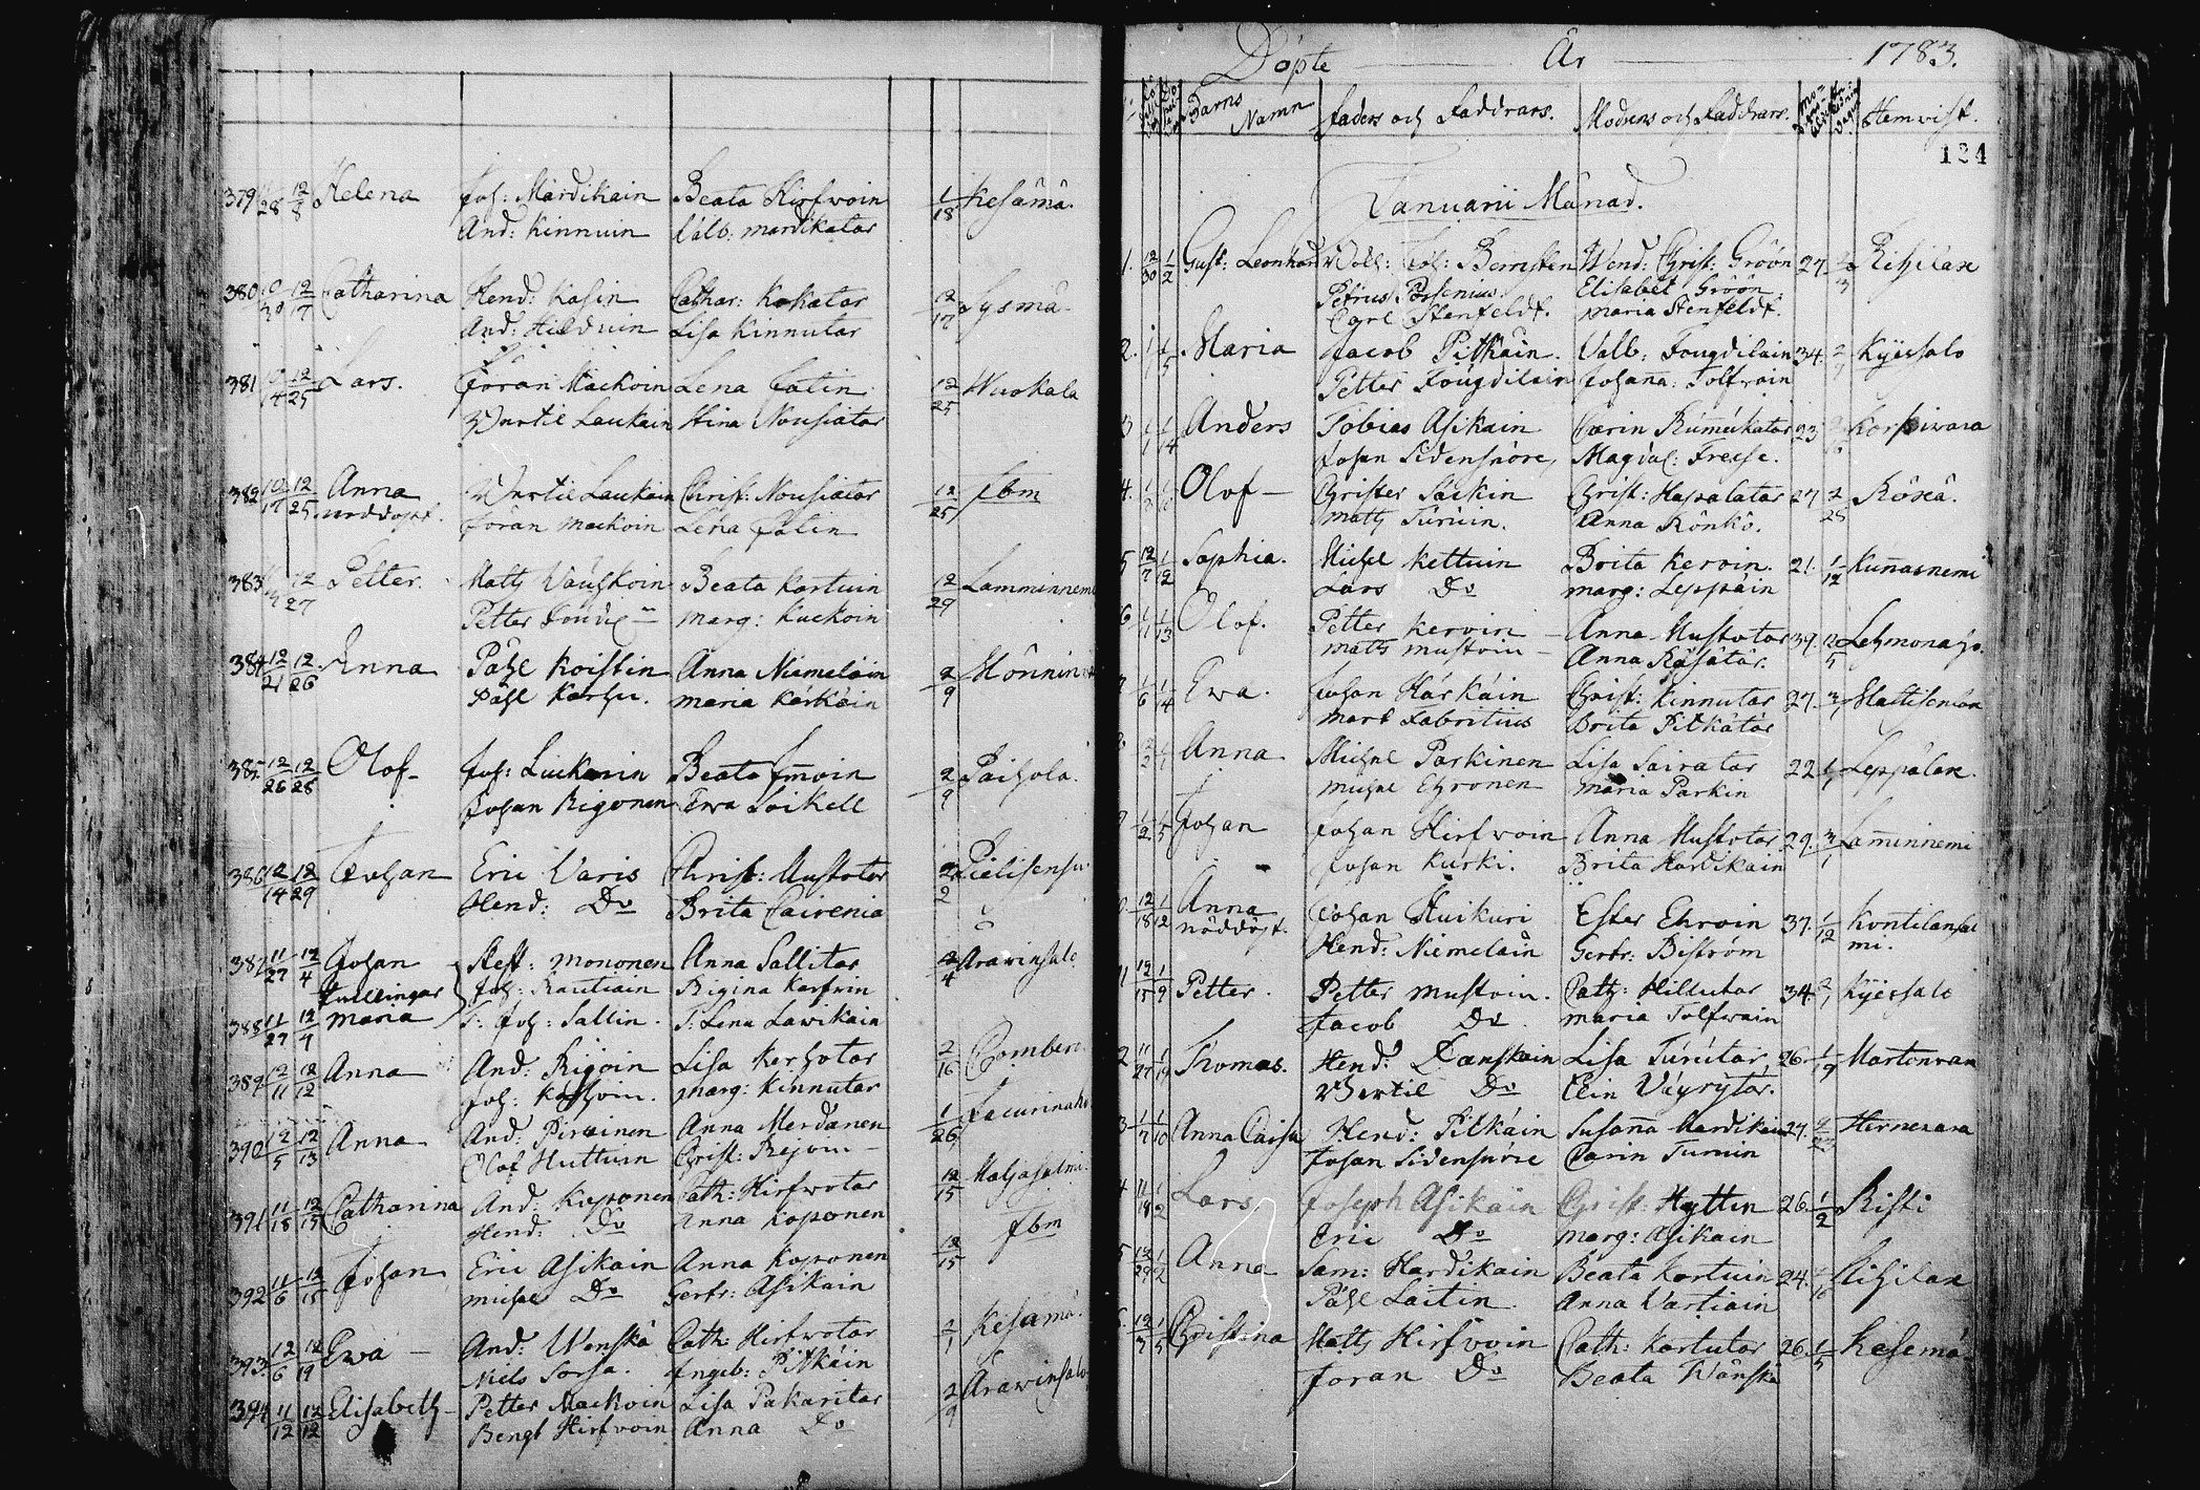 379 28 12/8 Helena Joh: Mardikain Beata Hirfwoin 1/18 Kesämä.
And: Kinnuin Walb: mardikatar
380 12/17 Catharina Hend: Kasin Cathar: Kokatar 2/17 Sysmä
And: Hilduin Lisa Kinnutar
381 12/25 Lars. Jöran Mäckoin Lena Jatin 12/25 Wuokala
Bertil Laukain Stina Nousiatar
382 12/25 Anna Bertil Laukain Christ: Nousiatar 12/25 Ibm
nöddöpt. Jöran mäckoin Lena Jatin
383 12/27 Petter. Matts Väuskoin Beata Kortuin 12/29 Lamminnemi
Petter marg: Kuckoin
384 12/21 12/26 Anna Påhl Koistin Anna Niemeläin 2/9 Hönnin
Påhl Karhu. maria Kärkäin
385 12/26 12/28 Olof Joh: Luckarin Beata Immoin 2/9 Paihola.
Johan Rigonen Ewa Loikell
386 12/14 12/29 Johan Eric Varis Christ: Mustotar 2/2 Pielisensu
Hend: Do Brita Cairenia
387 11/27 12/4 Johan Steff: Mononen Anna Sallitar 2/4 Arawinsalo
Tvillingar Joh: Rautiain Regina Karfvin
388 11/27 12/4 Maria T: Joh: Sallin. T: Lena Lawikain
389 12/11 12/12 Anna And: Rigoin Lisa Kerhotar 2/16 Comberi
Joh: marg: Kinnutar
390 12/5 12/13 Anna And: Pirainen Anna Merdänen 1/26 Jacurinaho
Olof Huttuin Christ: Rejoin
391 11/18 12/15 Catharina And: Koponen Cath: Hirfwotar 12/15 Haljasalmi
Hend: Do Anna Koponen
392 11/6 12/15 Johan Eric Asikain Anna Koponen 12/15 Ibm
michel Do Gertr: Asikain
393. 12/6 12/19 Ewa And: Wenskä Cath: Hirfwotar 2/1 Kesämä.
Niels Sorsa. Ingeb: Pitkäin
394 11/12 12/12 Elisabeth Petter Mackoin Lisa Pakaritar 2/9 Arawinsalo
Bengt Hirfwoin Anna Do
Döpte År 1783.
Barns Namn Faders och Faddrars. Modrens och Faddrars. Hemvist.
124
Januarii Månad.
1. 12/30 1/2 Gust: Leonhard Joh: Bernsten Wend: Christ: Gröön 27 Rihilax
Petrus Porsenius. Elisabet Gröön
Carl Stenfeldt. maria Stenfeldt.
2. 1/5 Maria Jacob Pitkäin. Valb: Fougdilain 34. Kyessalo
Petter Fougdilain Johanna: Tolfvain
3 1/14 Anders Tobias Asikain Carin Rumukatar 23 Korpivara
Johan Sidensnöre, Magdal: Freese.
4. Olof Christer Säckin Christ: Hapalatar 27 2/28 Röxä.
Matts Turuin. Anna Rönkö.
5 12/7 1/12 Sophia. Michel Kettuin Brita Kervin. 21. 1/12 Kunnasnemi
Lars Do marg: Leppäin
6 1/13 Olof. Petter Kervin Anna Mustotar 39. 12/5 Lehmonahjo.
Matts Mustoin Anna Räsätär.
1/6 1/14 Ewa. Johan Härkäin Christ: Kinnutar 27. 3/7
Mart Fabritius Brita Pitkätär
Anna Michel Parkinen Lisa Sairatar 22 Leppälax.
Michel Ehronen maria Parkin
1/2 1/5 Johan Johan Hirfwoin Anna Mustotar 29. 3/1 Laminnemi
Johan Kurki. Brita Hardikain
12/18 1/12 Anna Johan Huikuri Ester Ehroin 37. 1/12 Kontilansal
nöddöpt. Hend: Niemelain Gertr: Biström mi.
12/15 1/9 Petter. Petter Mustoin. Cath: Hillutar 34. 2/7 Kyessalo
Jacob Do maria Tolfwain
11/27 1/19 Thomas. Hend: Danskain Lisa Turutar, 26. 1/19 Martonvara
Bertil Do Elin Väyrytar.
1/7 1/10 Anna Caisa Hend: Pitkäin Susanna Mardikain 27. Hernevara
Johan Sidensnöre Carin Turuin
11/19 1/2 Lars Joseph Asikain Christ: Hyttin 26. 1/2 Risti
Eric Do Marg: Asikain
12/29 1/2 Anna Sam: Hardikain Beata Kortuin 24. Rihilax
Påhl Laitin. Anna Vartiain
12/3 1/5 Christina Matts Hirfwoin Cath: Kortutar 26. 1/5 Kesemä
Joran Do Beata Wänskä